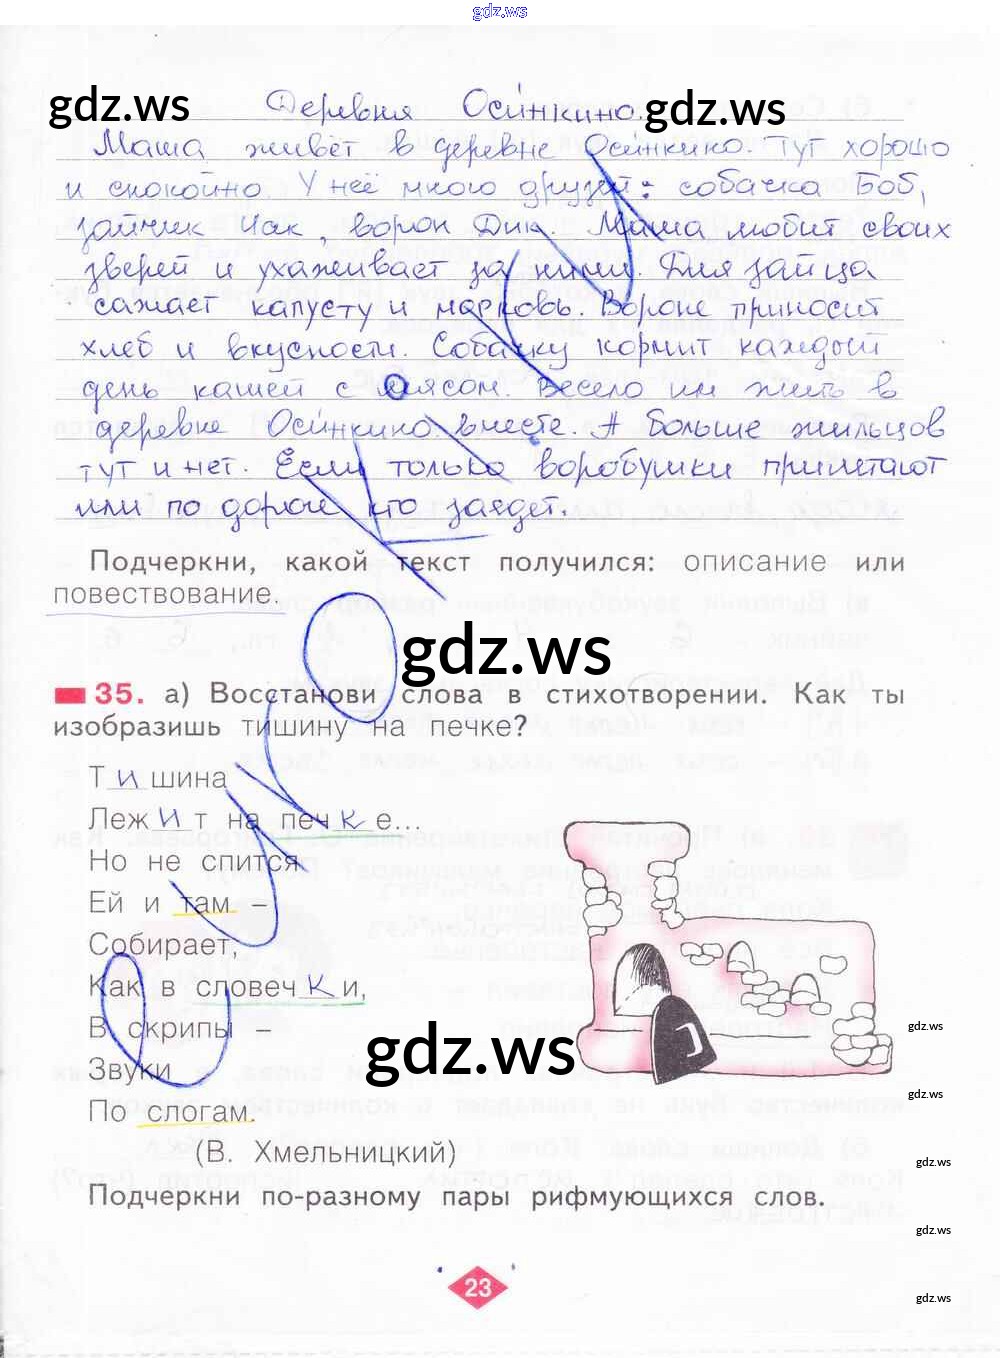 gdz.ws
gdz.ws
Деревня Осинкино.
gdz.ws
Маша живёт в деревне Осинкино. Тут хорошо
и спокойно. У неё много друзей: собачка Боб,
зайчик Чак, ворон Дик. Маша любит своих
зверей и ухаживает за ними. Для зайца
сажает капусту и морковь. Вороне приносит
хлеб и вкусности. Собачку кормит каждый
день кашей с мясом. Весело им жить в
деревне Осинкино вместе. А больше жильцов
тут и нет. Если только воробушки прилетают
или по дороге кто заедет.
Подчеркни, какой текст получился: описание или
повествование.
gdz.ws
35. а) Восстанови слова в стихотворении. Как ты
изобразишь тишину на печке?
Тишина
Лежит на печке...
Но не спится.
Ей и там –
Собирает,
Как в словечки,
В скрипы –
gdz.ws
gdz.ws
Звуки
gdz.ws
По слогам.
(В. Хмельницкий)
gdz.ws
Подчеркни по-разному пары рифмующихся слов.
gdz.ws
23
gdz.ws